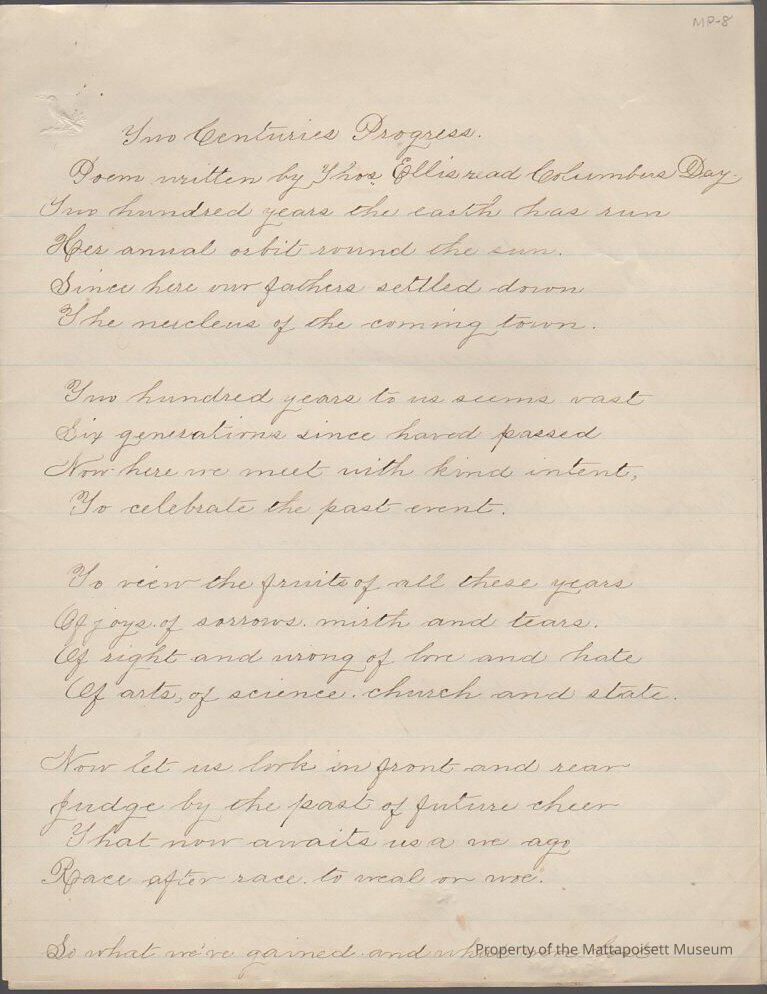 MP-8
Two Centuries Progress.
Poem written by Thos. Ellis read Columbus Day.
Two hundred years the earth has run
Her annual orbit round the sun.
Since here our fathers settled down
The nucleus of the coming town.
Two hundred years to us seems vast
Six generations since haved passed
Now here we meet with kind intent,
To celebrate the past event.
To view the fruits of all these years
Of joys. of sorrows. mirth and tears.
Of right and wrong of love and hate
Of arts, of science. church and state.
Now let us look in front and rear
Judge by the past of future cheer
That now awaits us a we ago
Race after race. to weal or woe.
So what we've gained and
Property of the Mattapoisett Museum